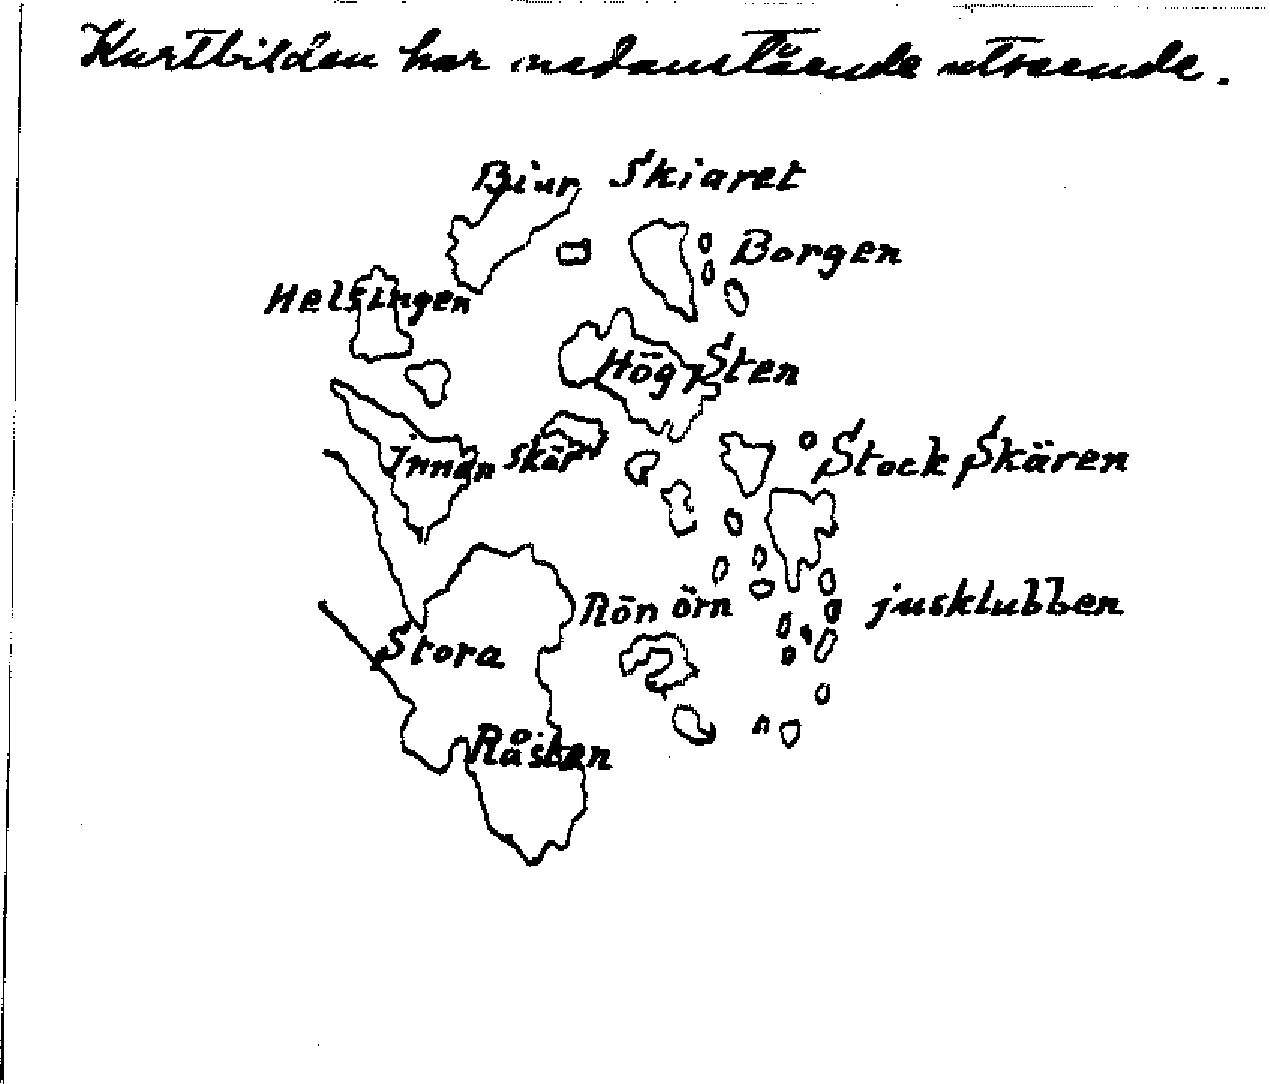 Kartbilden har nedanstående utseende.
Biur Skiaret
Borgen
Helsingen
Hög Sten
Innan Skär
Stock Skären
Rön örn
jusklubben
Stora
Råsten